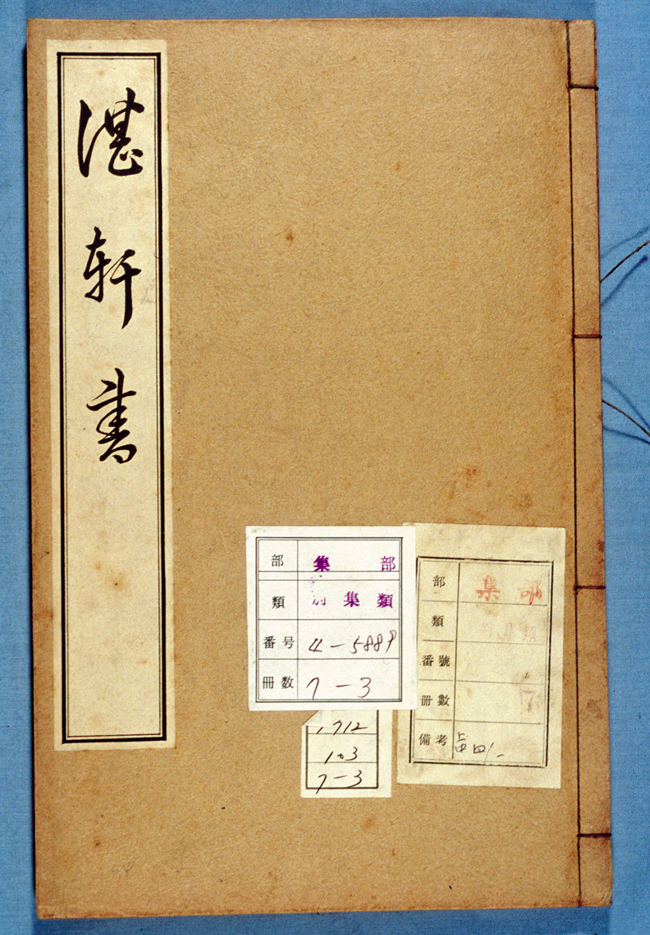 湛軒書
部 集部
類 別集類
番号 4-5889
冊数 7-3
1712
103
7-3
部 集部
類
番號
册數 7
備考